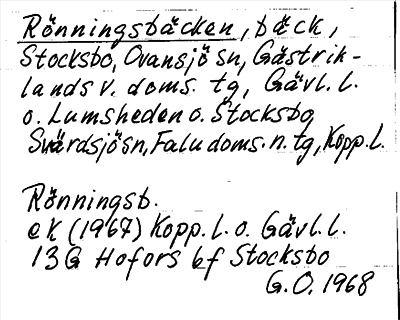 Rönningsbäcken, bäck,
Stocksbo, Ovansjö sn, Gästrik-
lands v. doms. tg, Gävl. l.
o. Lumsheden o. Stocksbo,
Svärdsjö sn, Falu doms. n. tg, Kopp. l.
Rönningsb.
ek (1967) Kopp. l. o. Gävl. l.
13G Hofors bf Stocksbo
G.O. 1968